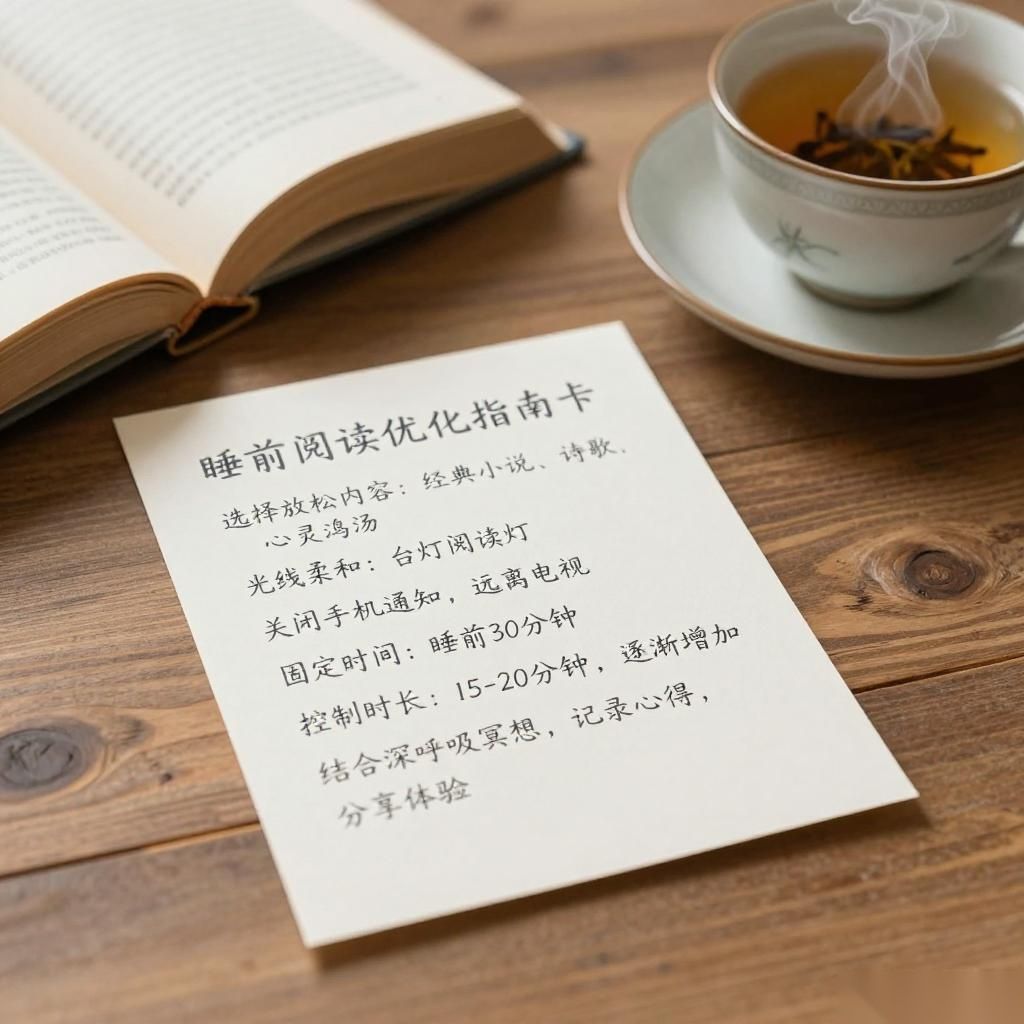 睡前阅读优化指南卡
选择放松内容：经典小说、诗歌、
心灵鸡汤
光线柔和：台灯阅读灯
关闭手机通知，远离电视
固定时间：睡前30分钟
控制时长：15-20分钟，逐渐增加
结合深呼吸冥想，记录心得，
分享体验